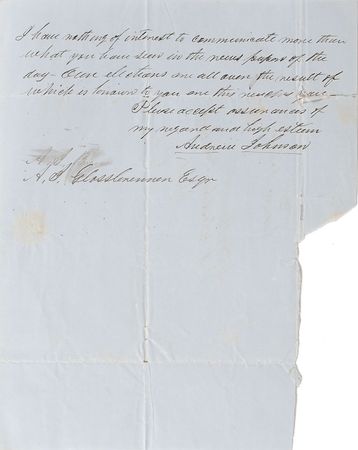 I have nothing of interest to communicate more than
what you have seen in the news papers of the
day - Our elections are all over the result of
which is known to you
Please accept assurances of
my regard and high esteem
Andrew Johnson
A. J.
A. J. Glossbrenner Esqr